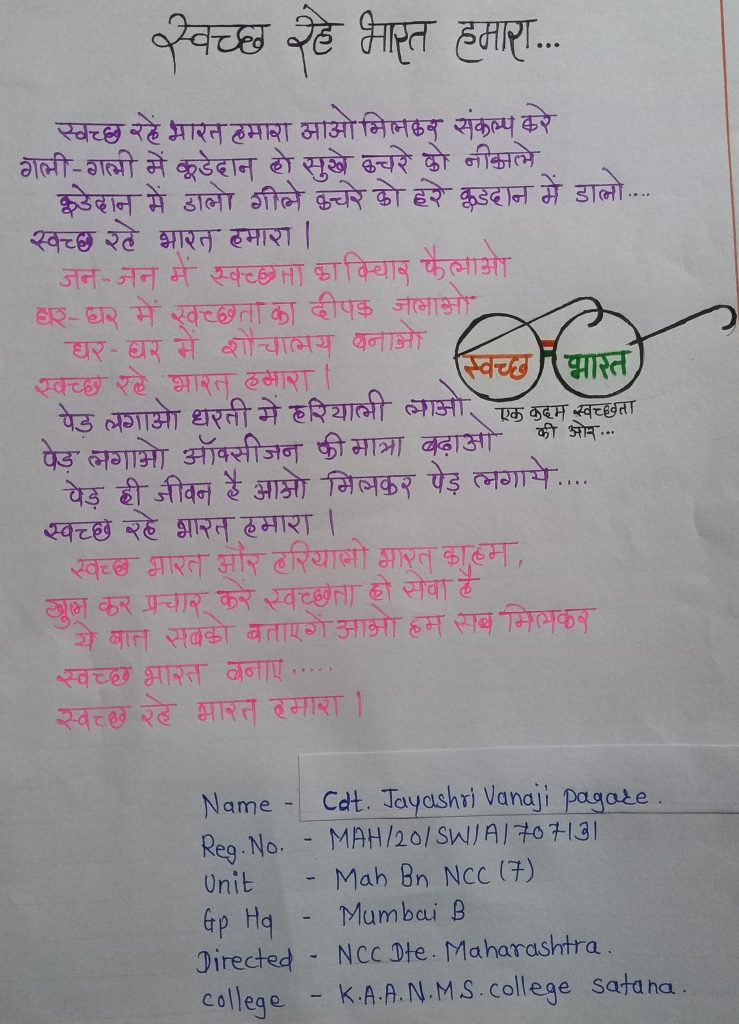 स्वच्छ रहे भारत हमारा...
स्वच्छ रहे भारत हमारा आओ मिलकर संकल्प करे
गली-गली में कूडेदान हो सुखे कचरे को नीकाले
कूडेदान में डालो गीले कचरे को हरे कूडदान में डालो....
स्वच्छ रहे भारत हमारा।
जन-जन में स्वच्छता का विचार फैलाओ
घर-घर में स्वच्छता का दीपक जलाओ
घर-घर में शौचालय बनाओ
स्वच्छ रहे भारत हमारा।
पेड़ लगाओ धरती में हरियाली लाओ
पेड़ लगाओ ऑक्सीजन की मात्रा बढ़ाओ
पेड़ ही जीवन है आओ मिलकर पेड़ लगाये....
स्वच्छ रहे भारत हमारा।
स्वच्छ भारत और हरियाली भारत का हम,
खुल कर प्रचार करें स्वच्छता हो सेवा है
ये बात सबको बताएगें आओ हम सब मिलकर
स्वच्छ भारत बनाए.....
स्वच्छ रहे भारत हमारा।
स्वच्छ भारत
एक कदम स्वच्छता
की ओर...
Name - Cdt. Jayashri Vanaji pagare.
Reg.No. - MAH/20/SW/A/707131
Unit - Mah Bn NCC (7)
Gp Hq - Mumbai B
Directed - NCC Dte. Maharashtra.
college - K.A.A.N.M.S. college satana.